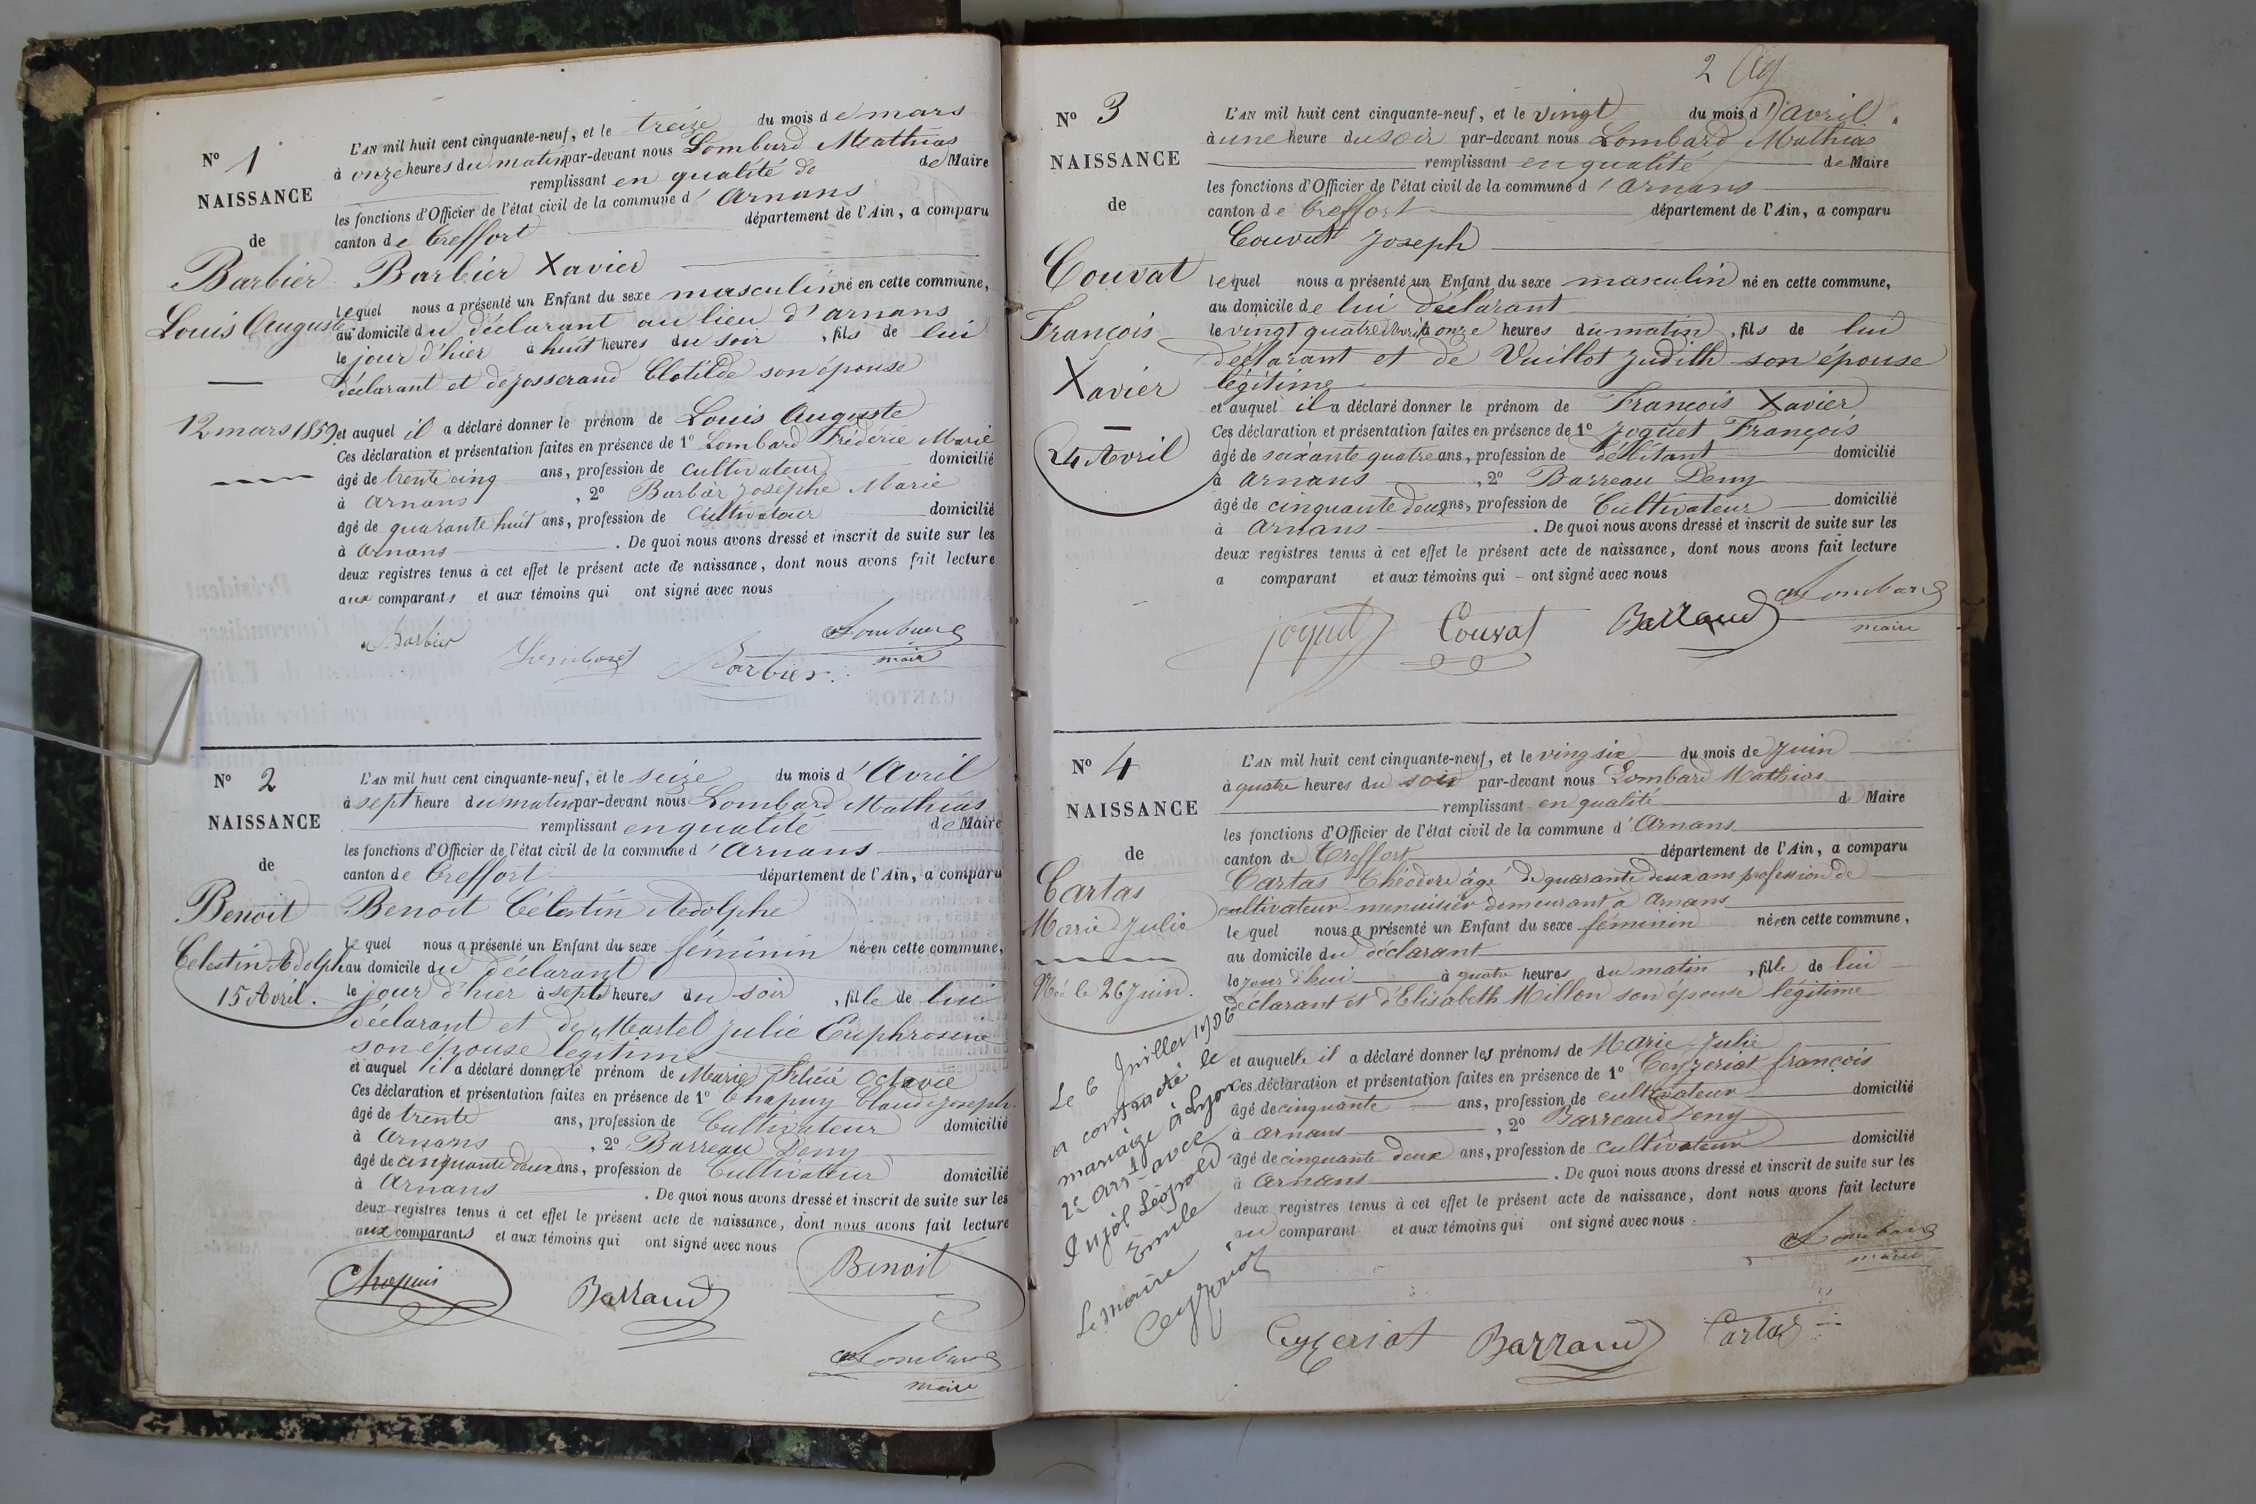 N° 1
NAISSANCE
de
Barbier
Louis Auguste
12 mars 1859
L'AN mil huit cent cinquante-neuf, et le treize du mois de mars
à onze heures du matin par-devant nous Lombard Mathias
remplissant en qualité de de Maire
les fonctions d'Officier de l'état civil de la commune d'Arnans
canton de Treffort département de l'Ain, a comparu
Barbier Xavier
lequel nous a présenté un Enfant du sexe masculin né en cette commune,
au domicile du déclarant au lieu d'arnans
le jour d'hier à huit heures du soir, fils de lui
déclarant et de josserand Clotilde son épouse
et auquel il a déclaré donner le prénom de Louis Auguste
Ces déclaration et présentation faites en présence de 1° Lombard Fréderic Marie
âgé de trente cinq ans, profession de cultivateur domicilié
à arnans, 2° Barbier Josephe Marie
âgé de quarante huit ans, profession de Cultivateur domicilié
à arnans. De quoi nous avons dressé et inscrit de suite sur les
deux registres tenus à cet effet le présent acte de naissance, dont nous avons fait lecture
aux comparants et aux témoins qui ont signé avec nous
Barbier Lombard Barbier Lombard
maire
N° 2
NAISSANCE
de
Benoit
Celestin Adolph
15 Avril.
L'AN mil huit cent cinquante-neuf, et le seize du mois d'Avril
à sept heure du matin par-devant nous Lombard Mathias
remplissant en qualité de Maire
les fonctions d'Officier de l'état civil de la commune d'Arnans
canton de Treffort département de l'Ain, a comparu
Benoit Célestin Adolphe
lequel nous a présenté un Enfant du sexe féminin née en cette commune,
au domicile du déclarant
le jour d'hier à sept heures du soir, fille de lui
déclarant et de Martel julie Euphrosine
son épouse legitime
et auquel il a déclaré donner le prénom de Marie Félicie Octavie
Ces déclaration et présentation faites en présence de 1° Chapuy Claude joseph
âgé de trente ans, profession de Cultivateur domicilié
à Arnans, 2° Barreau Deny
âgé de cinquante deux ans, profession de Cultivateur domicilié
à Arnans. De quoi nous avons dressé et inscrit de suite sur les
deux registres tenus à cet effet le présent acte de naissance, dont nous avons fait lecture
aux comparants et aux témoins qui ont signé avec nous
Chapuis Barraud Benoit
Lombard
maire
2
N° 3
NAISSANCE
de
Couvat
François
Xavier
24 Avril
L'AN mil huit cent cinquante-neuf, et le vingt du mois d'avril
à une heure du soir par-devant nous Lombard Mathias
remplissant en qualité de Maire
les fonctions d'Officier de l'état civil de la commune d'Arnans
canton de Treffort département de l'Ain, a comparu
Couvat Joseph
lequel nous a présenté un Enfant du sexe masculin né en cette commune,
au domicile de lui declarant
le vingt quatre à onze heures du matin, fils de lui
déclarant et de Vuillot judith son épouse
légitime
et auquel il a déclaré donner le prénom de François Xavier
Ces déclaration et présentation faites en présence de 1° Joquet François
âgé de soixante quatre ans, profession de débitant domicilié
à arnans, 2° Barreau Deny
âgé de cinquante deux ans, profession de Cultivateur domicilié
à arnans. De quoi nous avons dressé et inscrit de suite sur les
deux registres tenus à cet effet le présent acte de naissance, dont nous avons fait lecture
a comparant et aux témoins qui ont signé avec nous
joquet Couvat Barraud Lombard
maire
N° 4
NAISSANCE
de
Cartas
Marie Julie
Née le 26 juin.
Le 6 Juillet 1906
a contracté le
mariage à Lyon
2e Arrt avec
Pujol Léopold
Emile
Le Maire
Ceyzeriat
L'AN mil huit cent cinquante-neuf, et le vingsix du mois de Juin
à quatre heures du soir par-devant nous Lombard Mathias
remplissant en qualité de Maire
les fonctions d'Officier de l'état civil de la commune d'Arnans
canton de Treffort département de l'Ain, a comparu
Cartas Théodore âgé de quarante deux ans profession de
cultivateur menuisier demeurant à Arnans
lequel nous a présenté un Enfant du sexe féminin née en cette commune,
au domicile du déclarant
le jour d'hui à quatre heures du matin, fille de lui
déclarant et d'Elisabeth Millon son épouse légitime
et auquelle il a déclaré donner les prénoms de Marie Julie
Ces déclaration et présentation faites en présence de 1° Ceyzeriat françois
âgé de cinquante ans, profession de cultivateur domicilié
à arnans, 2° Barreaud Deny
âgé de cinquante deux ans, profession de cultivateur domicilié
à arnans. De quoi nous avons dressé et inscrit de suite sur les
deux registres tenus à cet effet le présent acte de naissance, dont nous avons fait lecture
au comparant et aux témoins qui ont signé avec nous.
Lombard
maire
Ceyzeriat Barraud Cartas